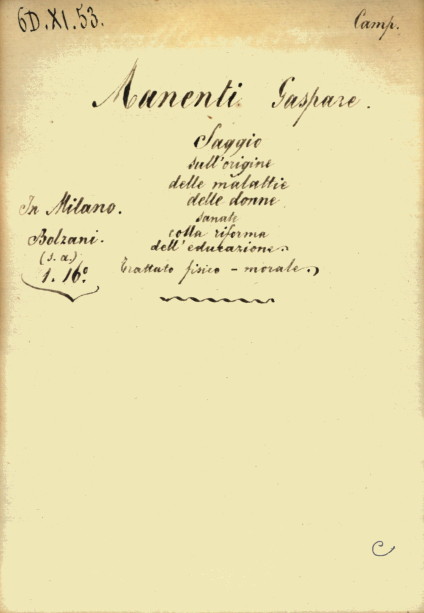 6D.XI.53.
Camp.
Manenti Gaspare.
Saggio
sull'origine
delle malattie
delle donne
sanate
colla riforma
dell'educazione.
Trattato fisico - morale.
In Milano.
Bolzani.
(s. a.)
1. 16.º
C